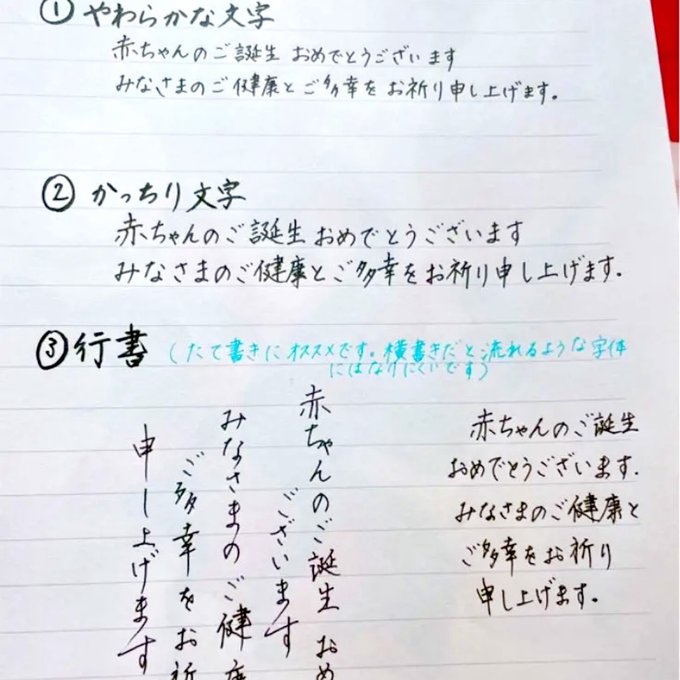 ① やわらかな文字
赤ちゃんのご誕生 おめでとうございます
みなさまのご健康とご多幸をお祈り申し上げます。
② かっちり文字
赤ちゃんのご誕生 おめでとうございます
みなさまのご健康とご多幸をお祈り申し上げます.
③ 行書 (たて書きにオススメです。横書きだと流れるような字体
にはなりにくいです)
赤ちゃんのご誕生 おめ
ございます
みなさまのご健康
ご多幸をお祈
申し上げます
赤ちゃんのご誕生
おめでとうございます.
みなさまのご健康と
ご多幸をお祈り
申し上げます。